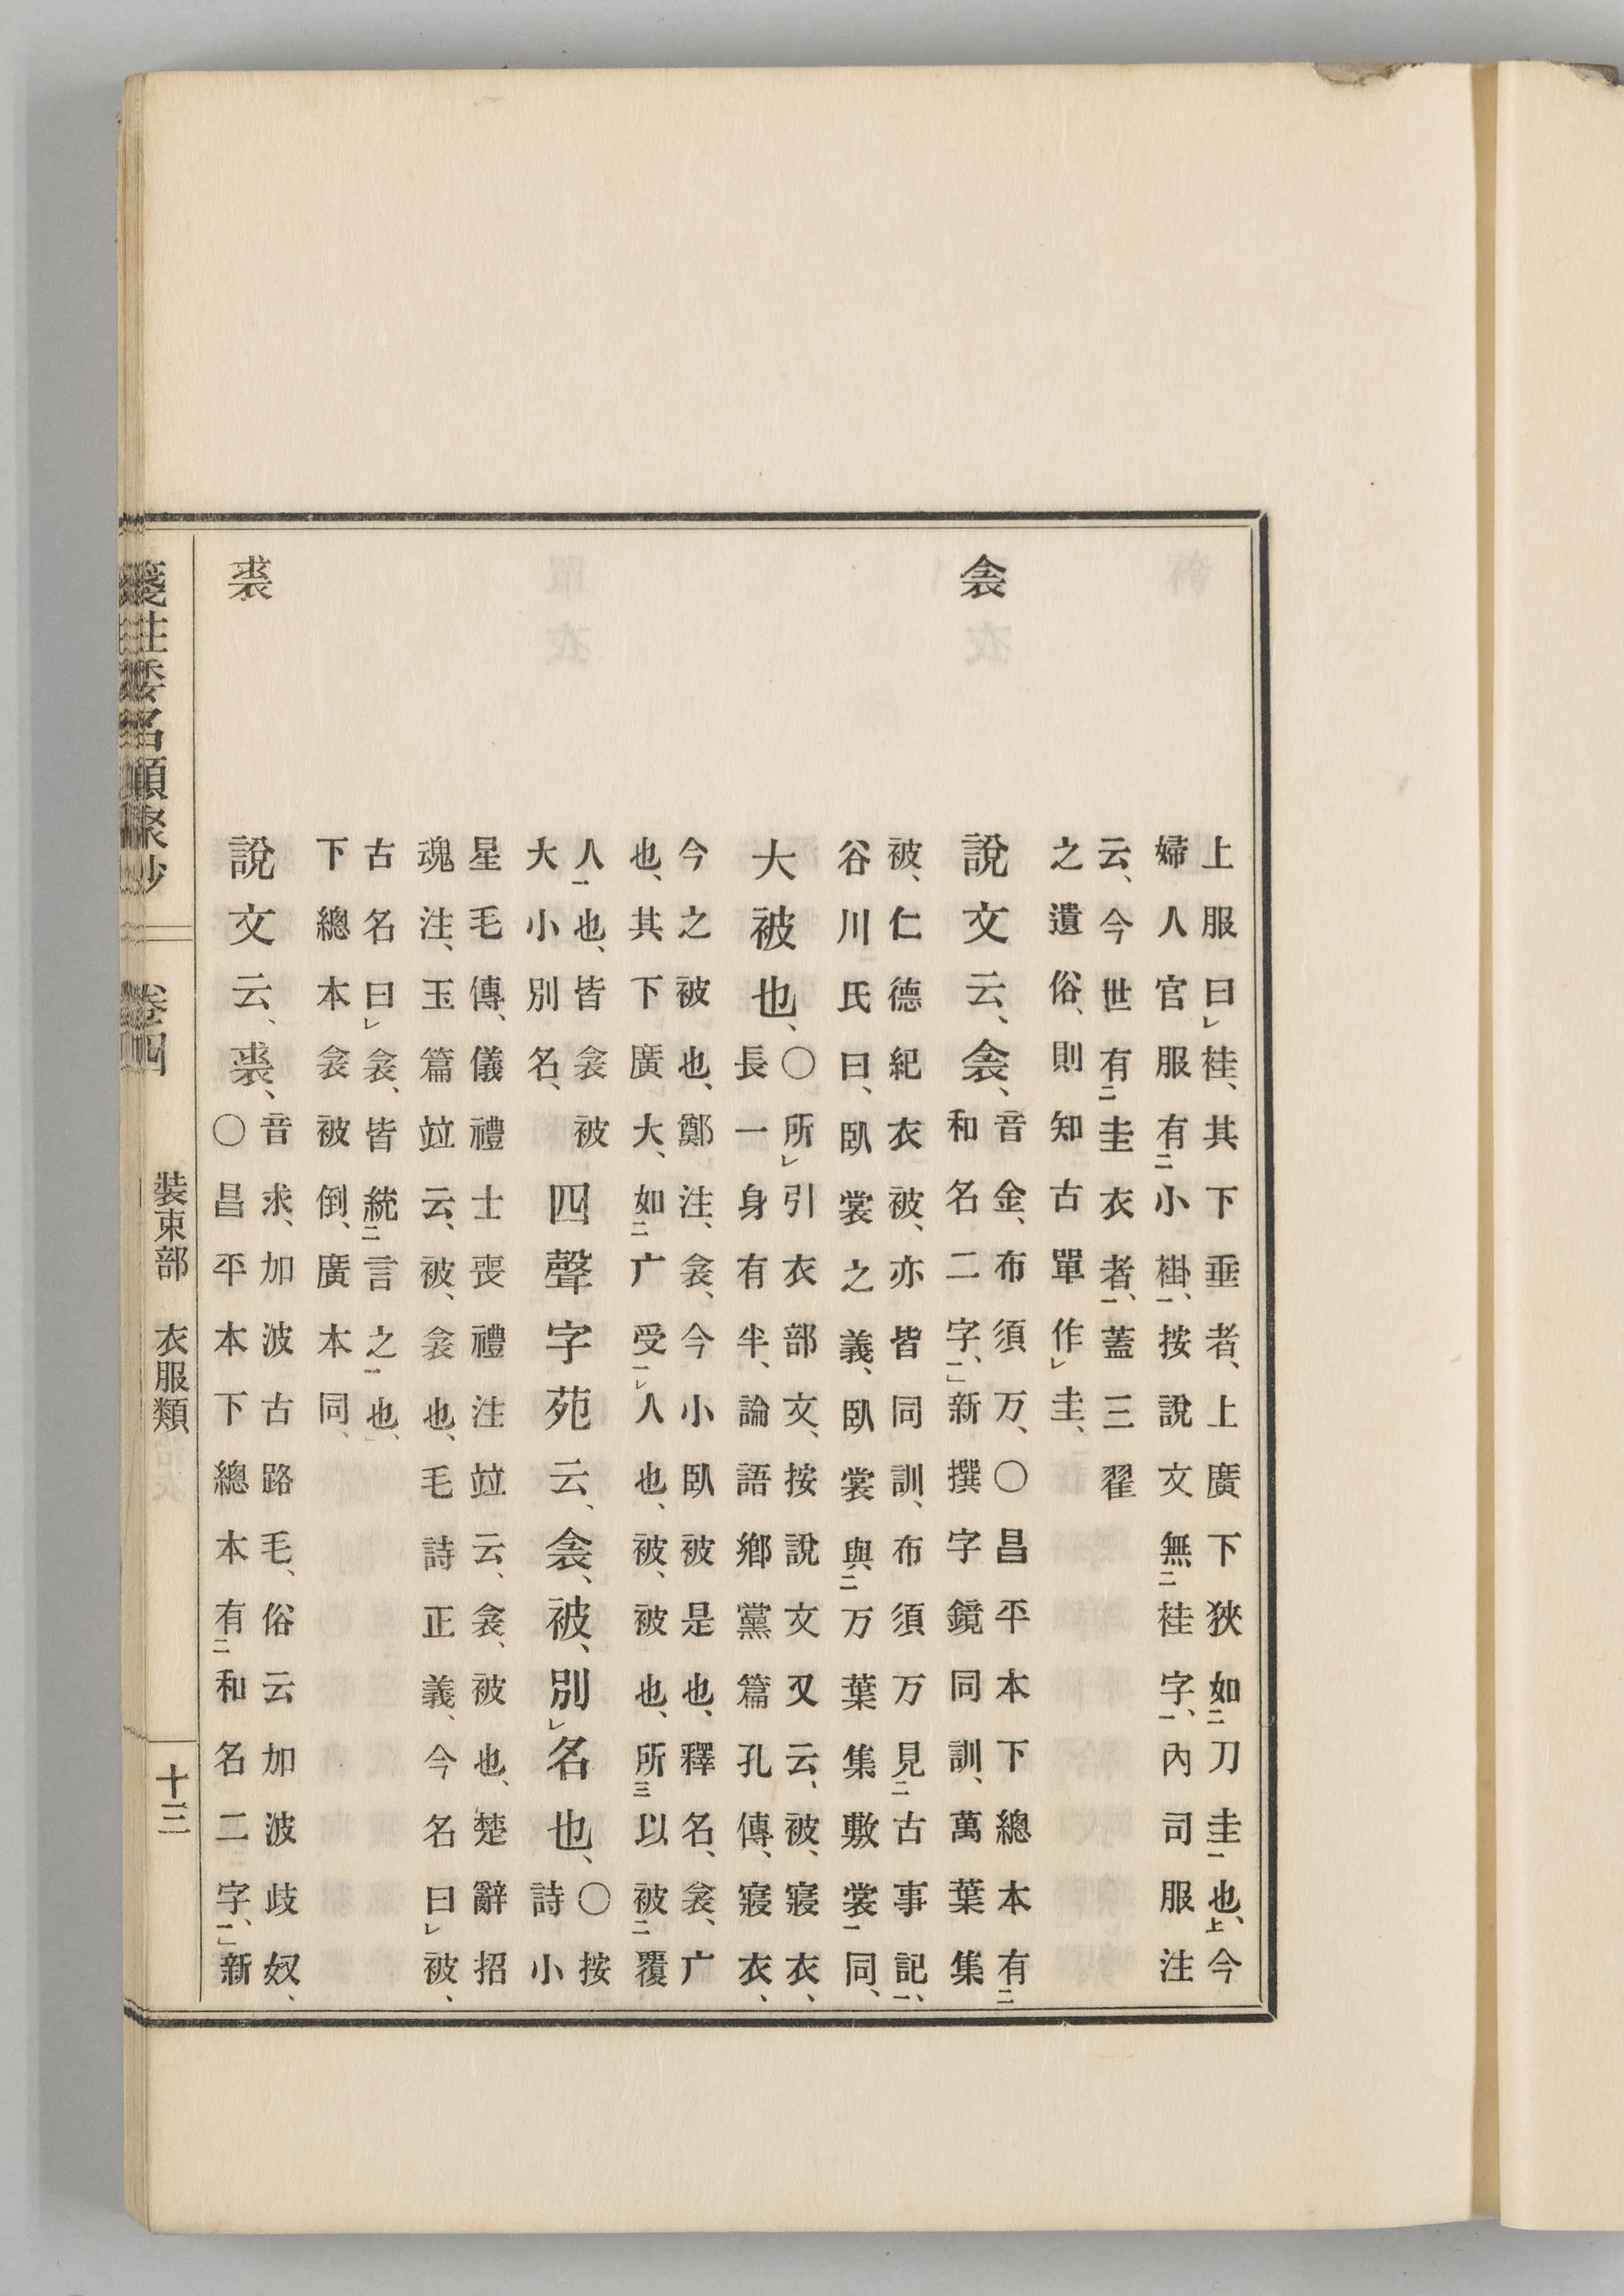 上服曰袿、其下垂者、上廣下狹如刀圭也、今
婦人官服有小褂、按說文無袿字、內司服注
云、今世有圭衣者、蓋三翟
之遺俗、則知古單作圭、
衾
說文云、衾、
音金、布須万、〇昌平本下總本有
和名二字、新撰字鏡同訓、萬葉集
被、仁德紀衣被、亦皆同訓、布須万見古事記、
谷川氏曰、臥裳之義、臥裳與万葉集敷裳同、
大被也、
〇所引衣部文、按說文又云、被、寢衣、
長一身有半、論語鄉黨篇孔傳、寢衣、
今之被也、鄭注、衾、今小臥被是也、釋名、衾、广
也、其下廣大、如广受人也、被、被也、所以被覆
人也、皆衾被
大小別名、
四聲字苑云、衾、被、別名也、
〇按
詩小
星毛傳、儀禮士喪禮注竝云、衾、被也、楚辭招
魂注、玉篇竝云、被、衾也、毛詩正義、今名曰被、
古名曰衾、皆統言之也、
下總本衾被倒、廣本同、
裘
說文云、裘、
音求、加波古路毛、俗云加波歧奴、
〇昌平本下總本有和名二字、新
箋注倭名類聚抄 卷四 裝束部 衣服類 十三